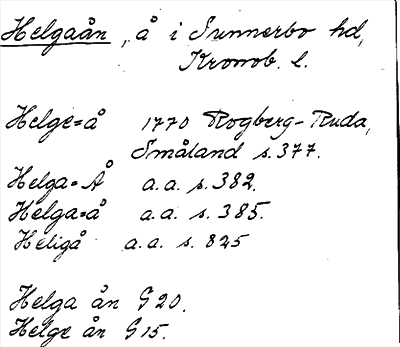 Helgaån, å i Sunnerbo hd,
Kronob. l.
Helge=å 1770 Rogberg-Ruda,
Småland s. 377.
Helga=Å a.a. s. 382.
Helga=å a.a. s. 385.
Heligå a.a. s. 825
Helga ån G20.
Helge ån G15.